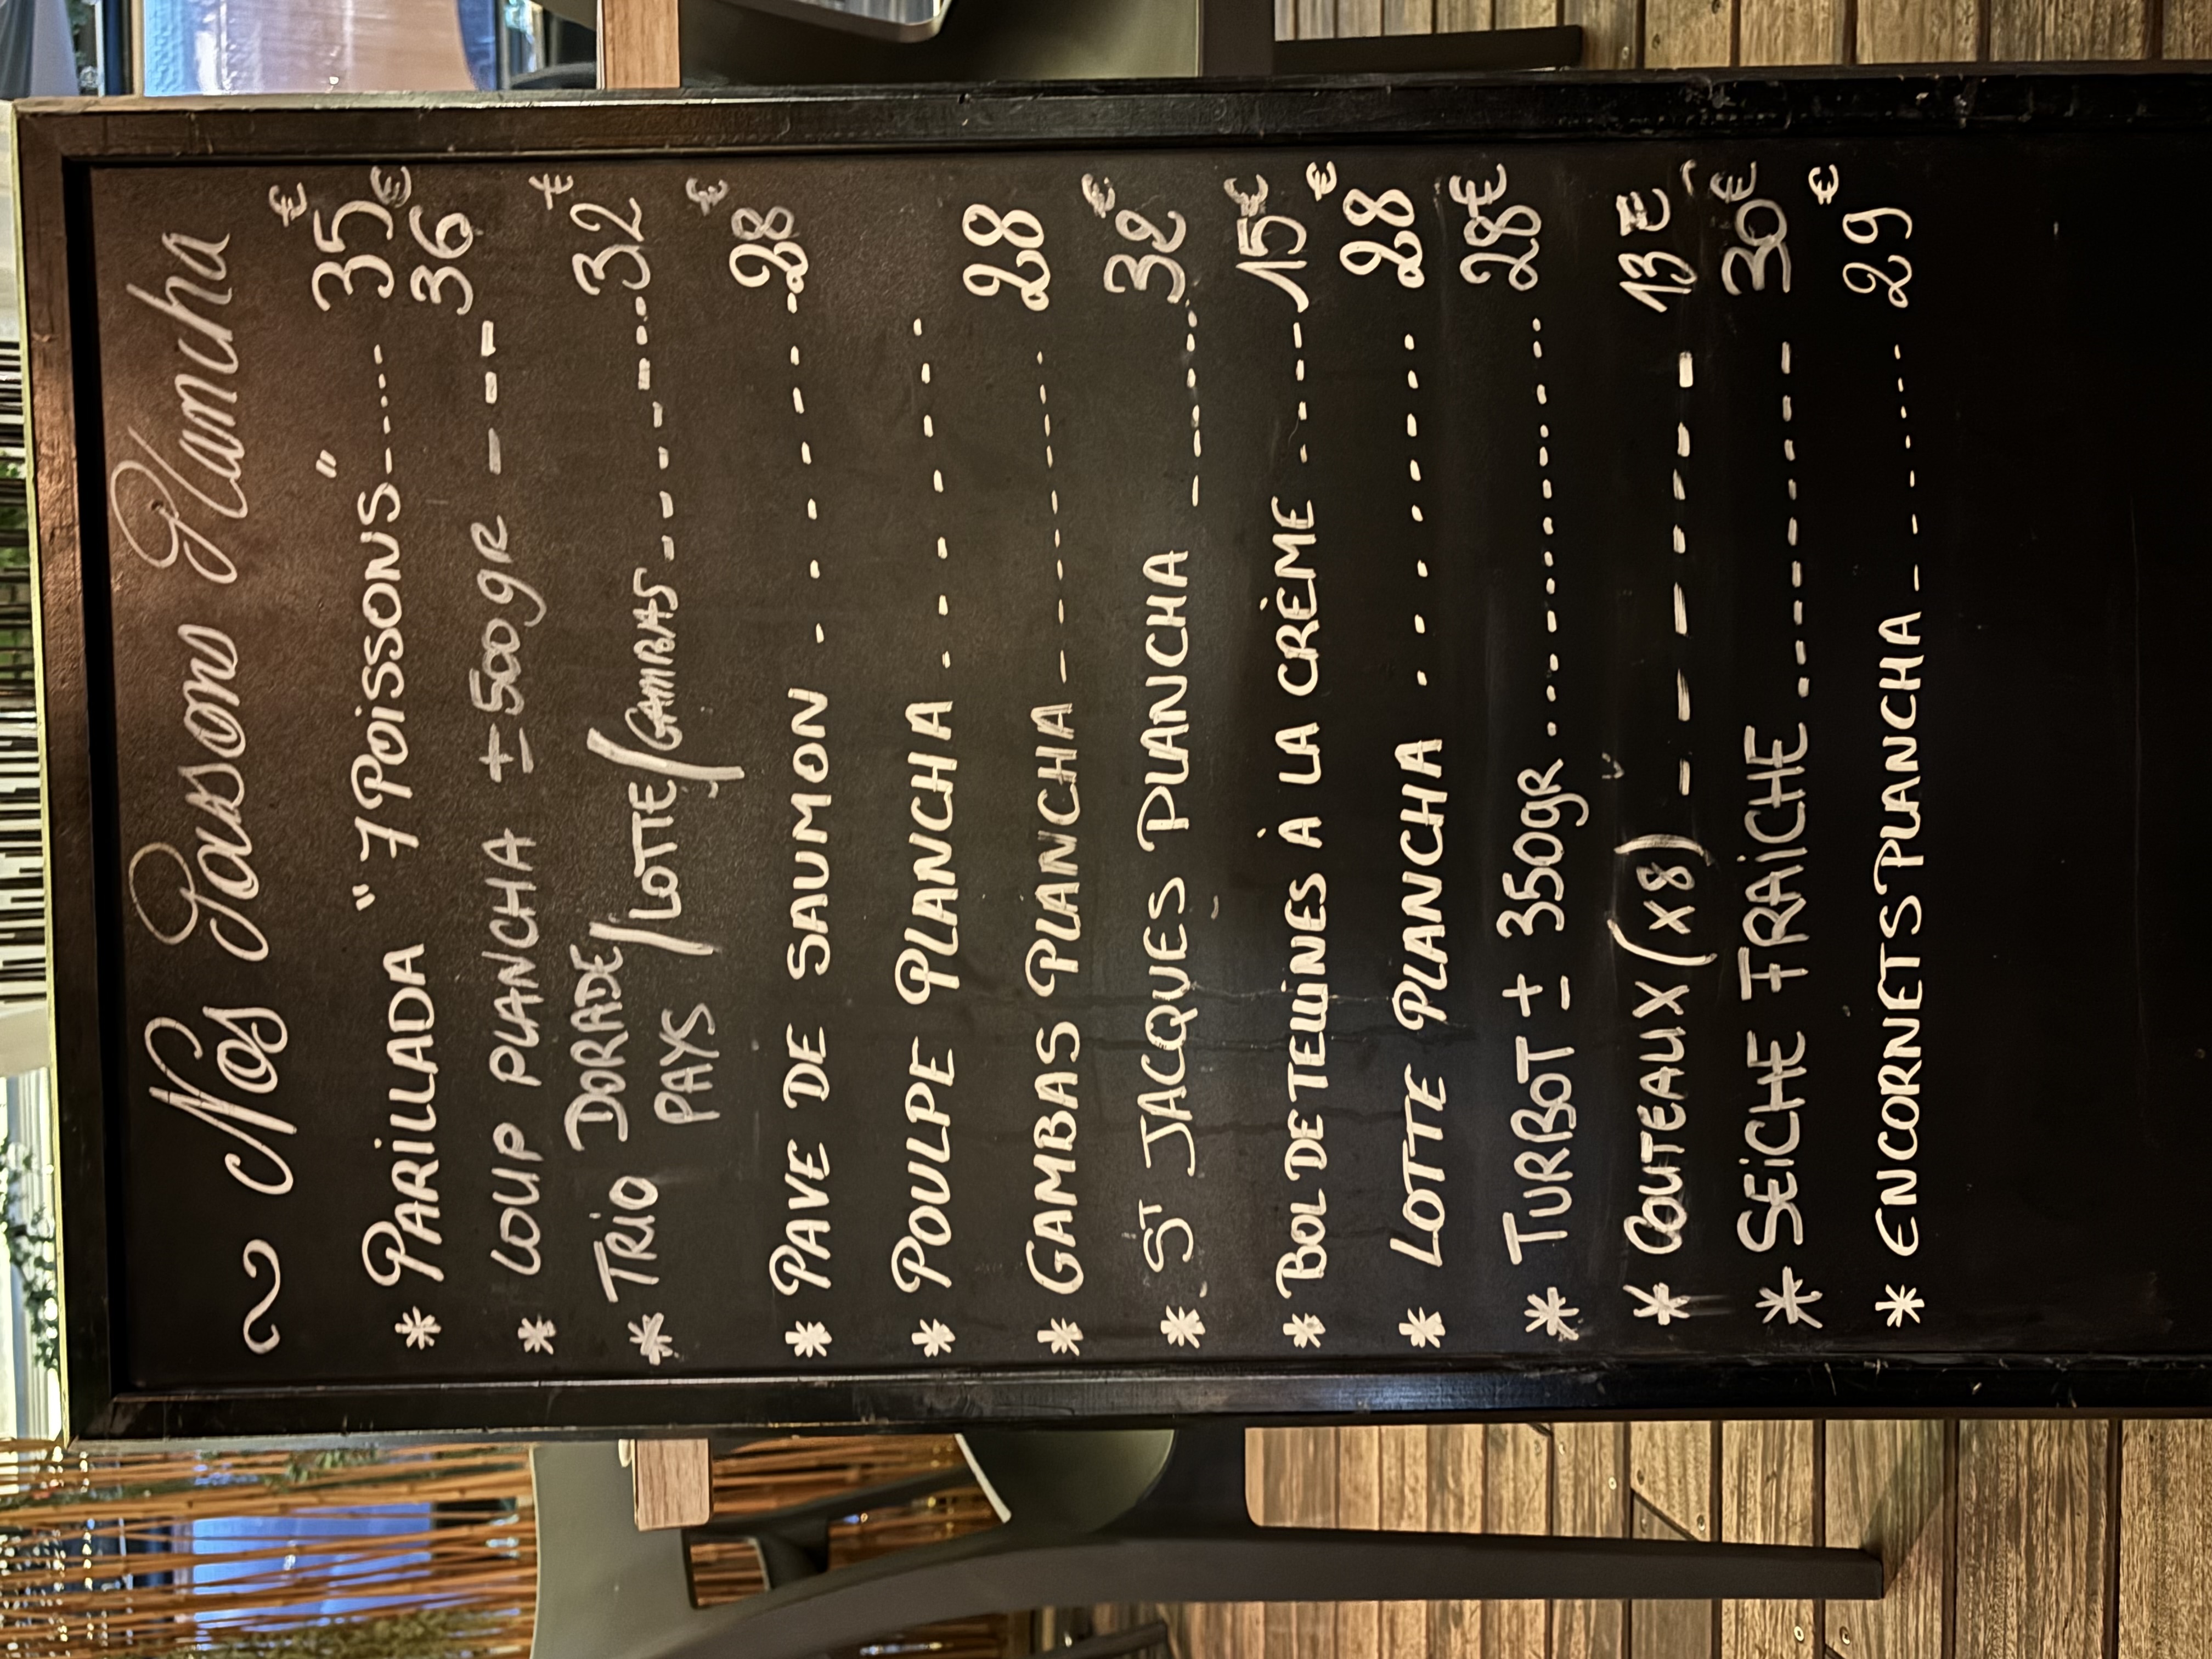 ~ Nos Poissons Plancha
* PARILLADA "7 POISSONS"-..... 35€
* LOUP PLANCHA ± 500gR ---- 36€
* TRIO DORADE/LOTTE/GAMBAS------.... 32€
PAYS
* PAVE DE SAUMON ------- 28€
* POULPE PLANCHA -------
* GAMBAS PLANCHA --------..... 28
* ST JACQUES PLANCHA ----..... 32€
* BOL DE TELLINES À LA CRÈME ----- 15€
* LOTTE PLANCHA .......... 28€
* TURBOT ± 350gR ................ 28€
* COUTEAUX (x8) ------- 13€
* SEICHE FRAICHE ---------- 30€
* ENCORNETS PLANCHA ---...... 29€